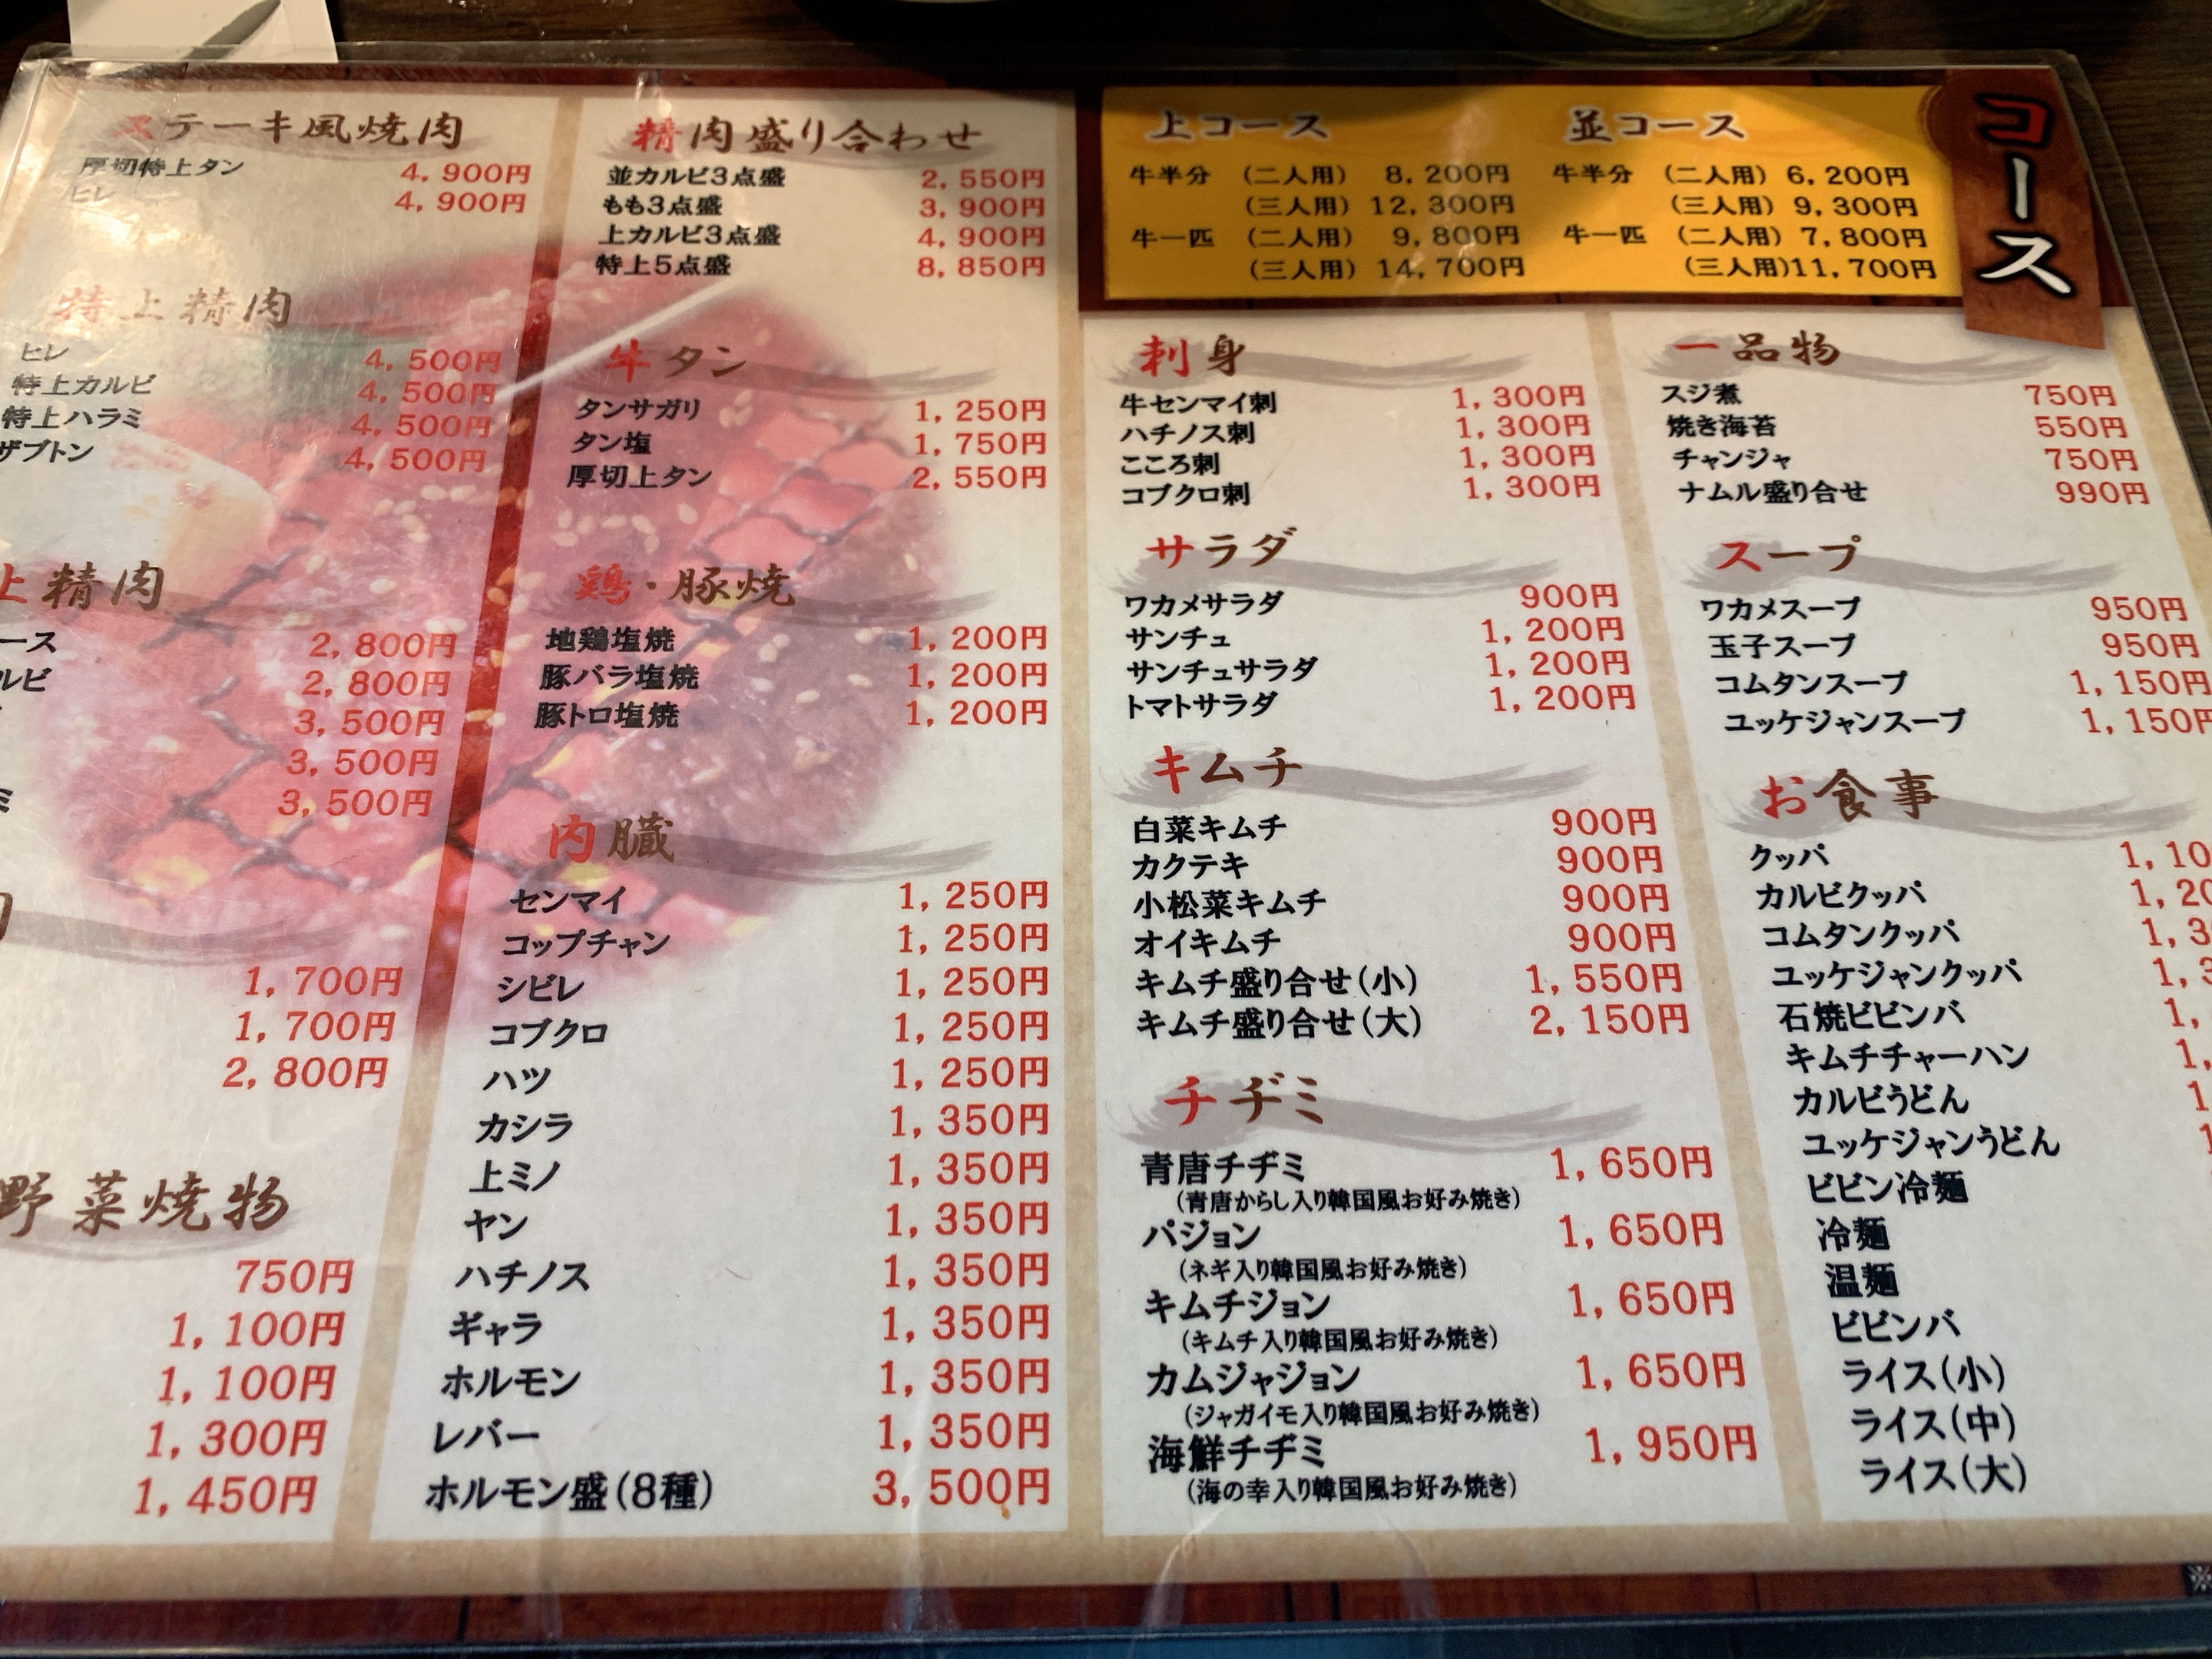 ステーキ風焼肉
厚切特上タン 4,900円
ヒレ 4,900円
特上精肉
ヒレ 4,500円
特上カルビ 4,500円
特上ハラミ 4,500円
ザブトン 4,500円
上精肉
ース 2,800円
ルビ 2,800円
3,500円
3,500円
ミ 3,500円
1,700円
1,700円
2,800円
野菜焼物
750円
1,100円
1,100円
1,300円
1,450円
精肉盛り合わせ
並カルビ3点盛 2,550円
もも3点盛 3,900円
上カルビ3点盛 4,900円
特上5点盛 8,850円
牛タン
タンサガリ 1,250円
タン塩 1,750円
厚切上タン 2,550円
鶏・豚焼
地鶏塩焼 1,200円
豚バラ塩焼 1,200円
豚トロ塩焼 1,200円
内臓
センマイ 1,250円
コップチャン 1,250円
シビレ 1,250円
コブクロ 1,250円
ハツ 1,250円
カシラ 1,350円
上ミノ 1,350円
ヤン 1,350円
ハチノス 1,350円
ギャラ 1,350円
ホルモン 1,350円
レバー 1,350円
ホルモン盛(8種) 3,500円
コース
上コース
牛半分 (二人用) 8,200円
(三人用) 12,300円
牛一匹 (二人用) 9,800円
(三人用) 14,700円
並コース
牛半分 (二人用) 6,200円
(三人用) 9,300円
牛一匹 (二人用) 7,800円
(三人用)11,700円
刺身
牛センマイ刺 1,300円
ハチノス刺 1,300円
こころ刺 1,300円
コブクロ刺 1,300円
サラダ
ワカメサラダ 900円
サンチュ 1,200円
サンチュサラダ 1,200円
トマトサラダ 1,200円
キムチ
白菜キムチ 900円
カクテキ 900円
小松菜キムチ 900円
オイキムチ 900円
キムチ盛り合せ(小) 1,550円
キムチ盛り合せ(大) 2,150円
チヂミ
青唐チヂミ 1,650円
(青唐からし入り韓国風お好み焼き)
パジョン 1,650円
(ネギ入り韓国風お好み焼き)
キムチジョン 1,650円
(キムチ入り韓国風お好み焼き)
カムジャジョン 1,650円
(ジャガイモ入り韓国風お好み焼き)
海鮮チヂミ 1,950円
(海の幸入り韓国風お好み焼き)
一品物
スジ煮 750円
焼き海苔 550円
チャンジャ 750円
ナムル盛り合せ 990円
スープ
ワカメスープ 950円
玉子スープ 950円
コムタンスープ 1,150円
ユッケジャンスープ 1,150円
お食事
クッパ 1,10
カルビクッパ 1,20
コムタンクッパ 1,3
ユッケジャンクッパ 1,3
石焼ビビンバ 1,
キムチチャーハン 1,
カルビうどん 1
ユッケジャンうどん 1
ビビン冷麺
冷麺
温麺
ビビンバ
ライス(小)
ライス(中)
ライス(大)
※